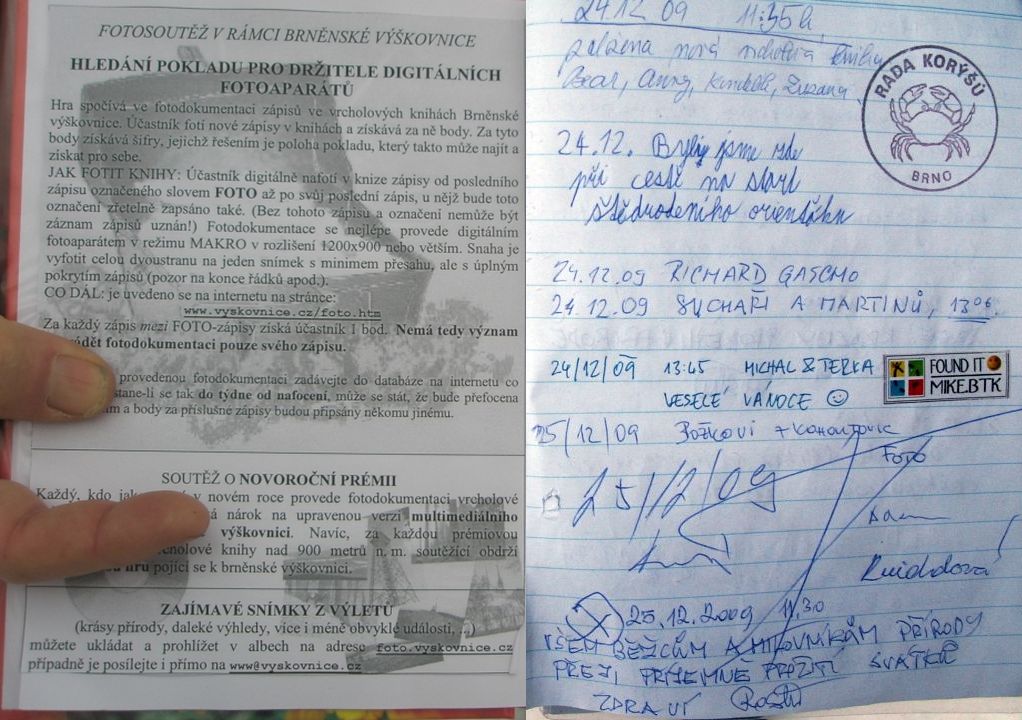 FOTOSOUTĚŽ V RÁMCI BRNĚNSKÉ VÝŠKOVNICE
HLEDÁNÍ POKLADU PRO DRŽITELE DIGITÁLNÍCH
FOTOAPARÁTŮ
Hra spočívá ve fotodokumentaci zápisů ve vrcholových knihách Brněnské
výškovnice. Účastník fotí nové zápisy v knihách a získává za ně body. Za tyto
body získává šifry, jejichž řešením je poloha pokladu, který takto může najít a
získat pro sebe.
JAK FOTIT KNIHY: Účastník digitálně nafotí v knize zápisy od posledního
zápisu označeného slovem FOTO až po svůj poslední zápis, u nějž bude toto
označení zřetelně zapsáno také. (Bez tohoto zápisu a označení nemůže být
záznam zápisů uznán!) Fotodokumentace se nejlépe provede digitálním
fotoaparátem v režimu MAKRO v rozlišení 1200x900 nebo větším. Snaha je
vyfotit celou dvoustranu na jeden snímek s minimem přesahu, ale s úplným
pokrytím zápisů (pozor na konce řádků apod.).
CO DÁL: je uvedeno se na internetu na stránce:
www.vyskovnice.cz/foto.htm
Za každý zápis mezi FOTO-zápisy získá účastník 1 bod. Nemá tedy význam
ádět fotodokumentaci pouze svého zápisu.
provedenou fotodokumentaci zadávejte do databáze na internetu co
stane-li se tak do týdne od nafocení, může se stát, že bude přefocena
m a body za příslušné zápisy budou připsány někomu jinému.
SOUTĚŽ O NOVOROČNÍ PRÉMII
Každý, kdo jak v novém roce provede fotodokumentaci vrcholové
á nárok na upravenou verzi multimediálního
výškovnici. Navíc, za každou prémiovou
cholové knihy nad 900 metrů n. m. soutěžící obdrží
hru pojící se k brněnské výškovnici.
ZAJÍMAVÉ SNÍMKY Z VÝLETŮ
(krásy přírody, daleké výhledy, více i méně obvyklé události, ...)
můžete ukládat a prohlížet v albech na adrese foto.vyskovnice.cz
případně je posílejte i přímo na www@vyskovnice.cz
24.12 09 11:35 h
založena nová vrcholová kniha
Bear, Anny, Zuzana
RADA KORÝŠŮ
BRNO
24.12. Byli jsme zde
při cestě na start
štědrodenního orienťáku
24.12.09 RICHARD GASCMO
24.12.09 SUCHAŘI A MARTINŮ, 13 06.
24/12/09 13:45 MICHAL & TERKA
VESELÉ VÁNOCE ☺
FOUND IT
MIKE.BTK
25/12/09 + Kohoutovic
FOTO
25/12/09
25.12.2009 11.30
VŠEM BĚŽCŮM A MILOVNÍKŮM PŘÍRODY
PŘEJI PŘÍJEMNÉ PROŽITÍ SVÁTKŮ
ZDRAVÍ